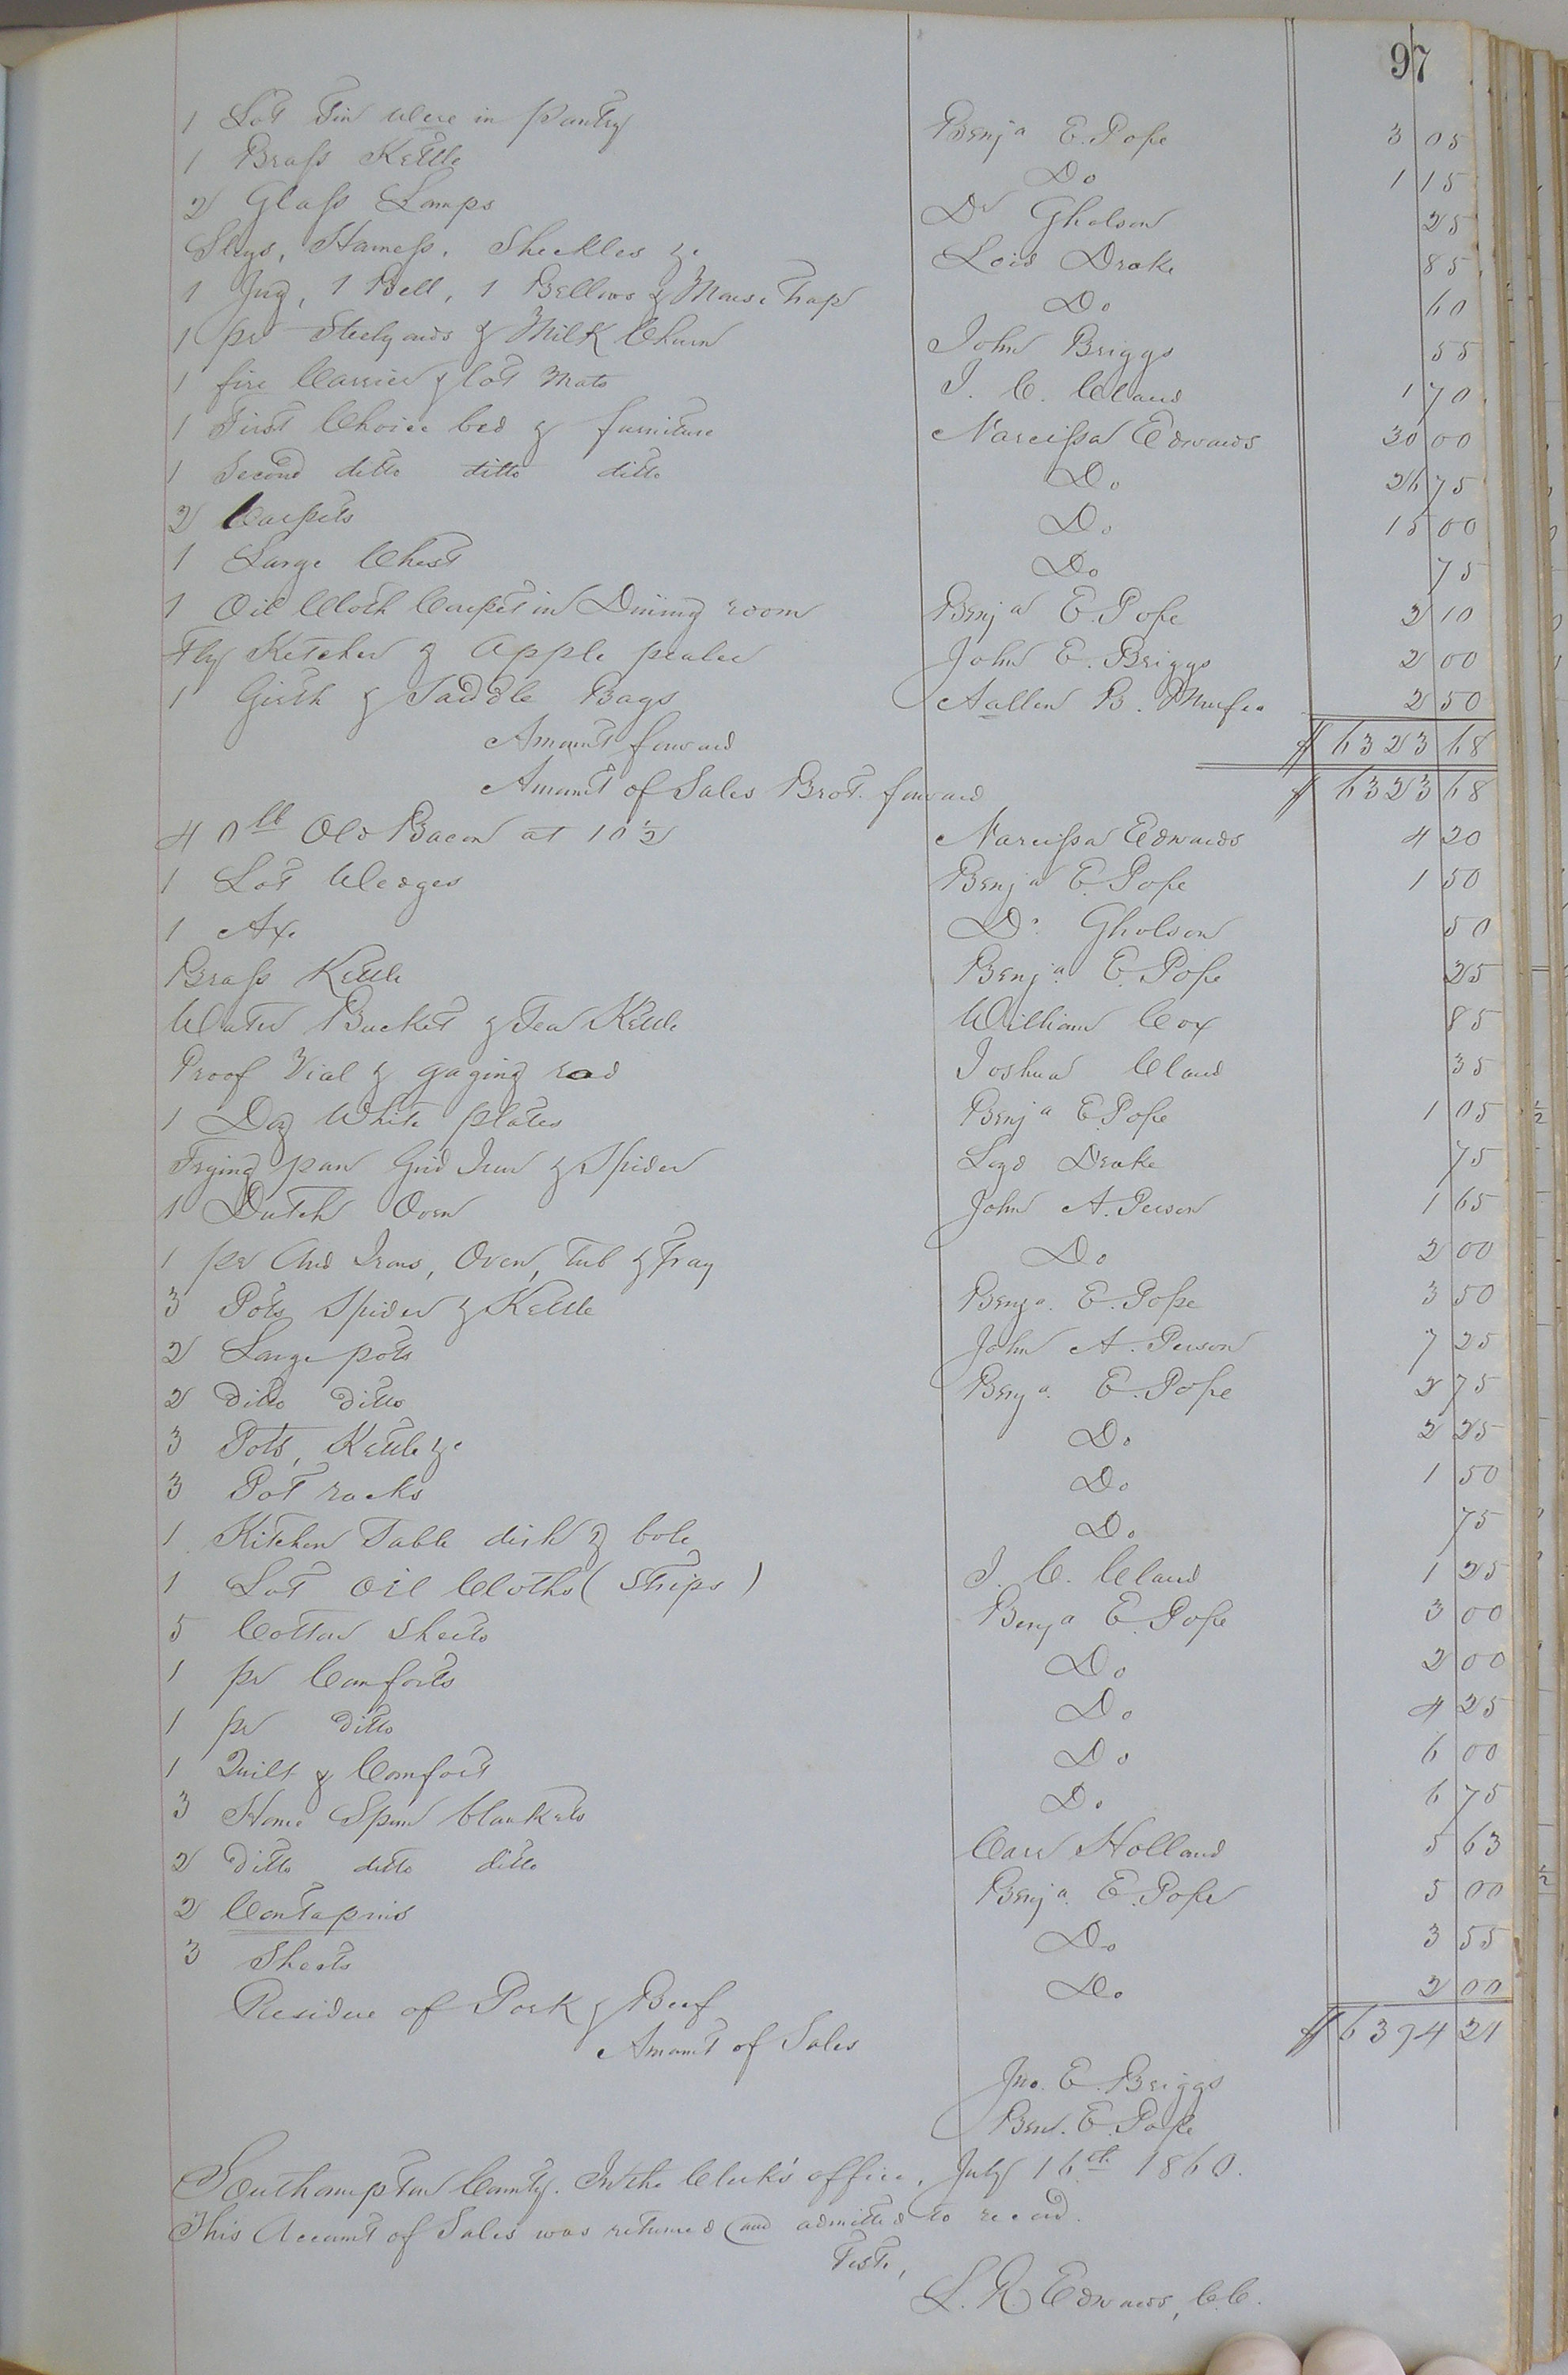 97
1 Lot Tin Were in Pantry Benja E. Pope 3 05
1 Brass Kettle Do 1 15
2 Glass Lamps Dr Gholson 25
Slays, Harness, Sheckles &c Lois Drake 85
1 Jug, 1 Bell, 1 Bellows & Mouse Trap Do 60
1 pr Steelyards & Milk Churn John Briggs 55
1 fire Carrier & lot Mats J. C. Claud 1 70
1 First Choice bed & furniture Narcissa Edwards 30 00
1 Second ditto ditto ditto Do 26 75
2 Carpets Do 15 00
1 Large Chest Do 75
1 Oil Cloth Carpet in Dining room Benja E. Pope 2 10
Fly Ketcher & Apple pealer John E. Briggs 2 00
1 Girth & Saddle Bags Aallen B. 2 50
Amount forward $ 6323 68
Amount of Sales Brot. forward $ 6323 68
40 lb Old Bacon at 10½ Narcissa Edwards 4 20
1 Lot Wedges Benja E. Pope 1 50
1 Ax Dr. Gholson 50
Brass Kettle Benja. E. Pope 25
Water Bucket & Tea Kettle William Cox 85
Proof Vial & gaging rod Joshua Claud 35
1 Doz White plates Benja E. Pope 1 05
Frying pan Grid Iron & Spider Drake 75
1 Dutch Oven John A. Person 1 65
1 pr And Irons, Oven, Tub & Tray Do 2 00
3 Pots Spider & Kettle Benja. E. Pope 3 50
2 Large pots John A. Person 7 25
2 Ditto Ditto Benja. E. Pope 2 75
3 Pots, Kettle &c Do 2 25
3 Pot racks Do 1 50
1 Kitchen Table dish & bole Do 75
1 Lot Oil Cloths (Strips) J. C. Claud 1 25
5 Cotton Sheets Benja E. Pope 3 00
1 pr Comforts Do 2 00
1 pr Ditto Do 4 25
1 Quilt & Comfort Do 6 00
3 Home Spun blankets Do 6 75
2 Ditto ditto ditto Carr Holland 5 63
2 Contapins Benja. E. Pope 5 00
3 Sheets Do 3 55
Residue of Pork & Beef Do 2 00
Amount of Sales $ 6394 21
Jno. E. Briggs
Ben. E. Pope
Southampton County. In the Clerk's office, July 16th 1860.
This Account of Sales was returned and admitted to record.
Teste,
L. R. Edwards, C.C.